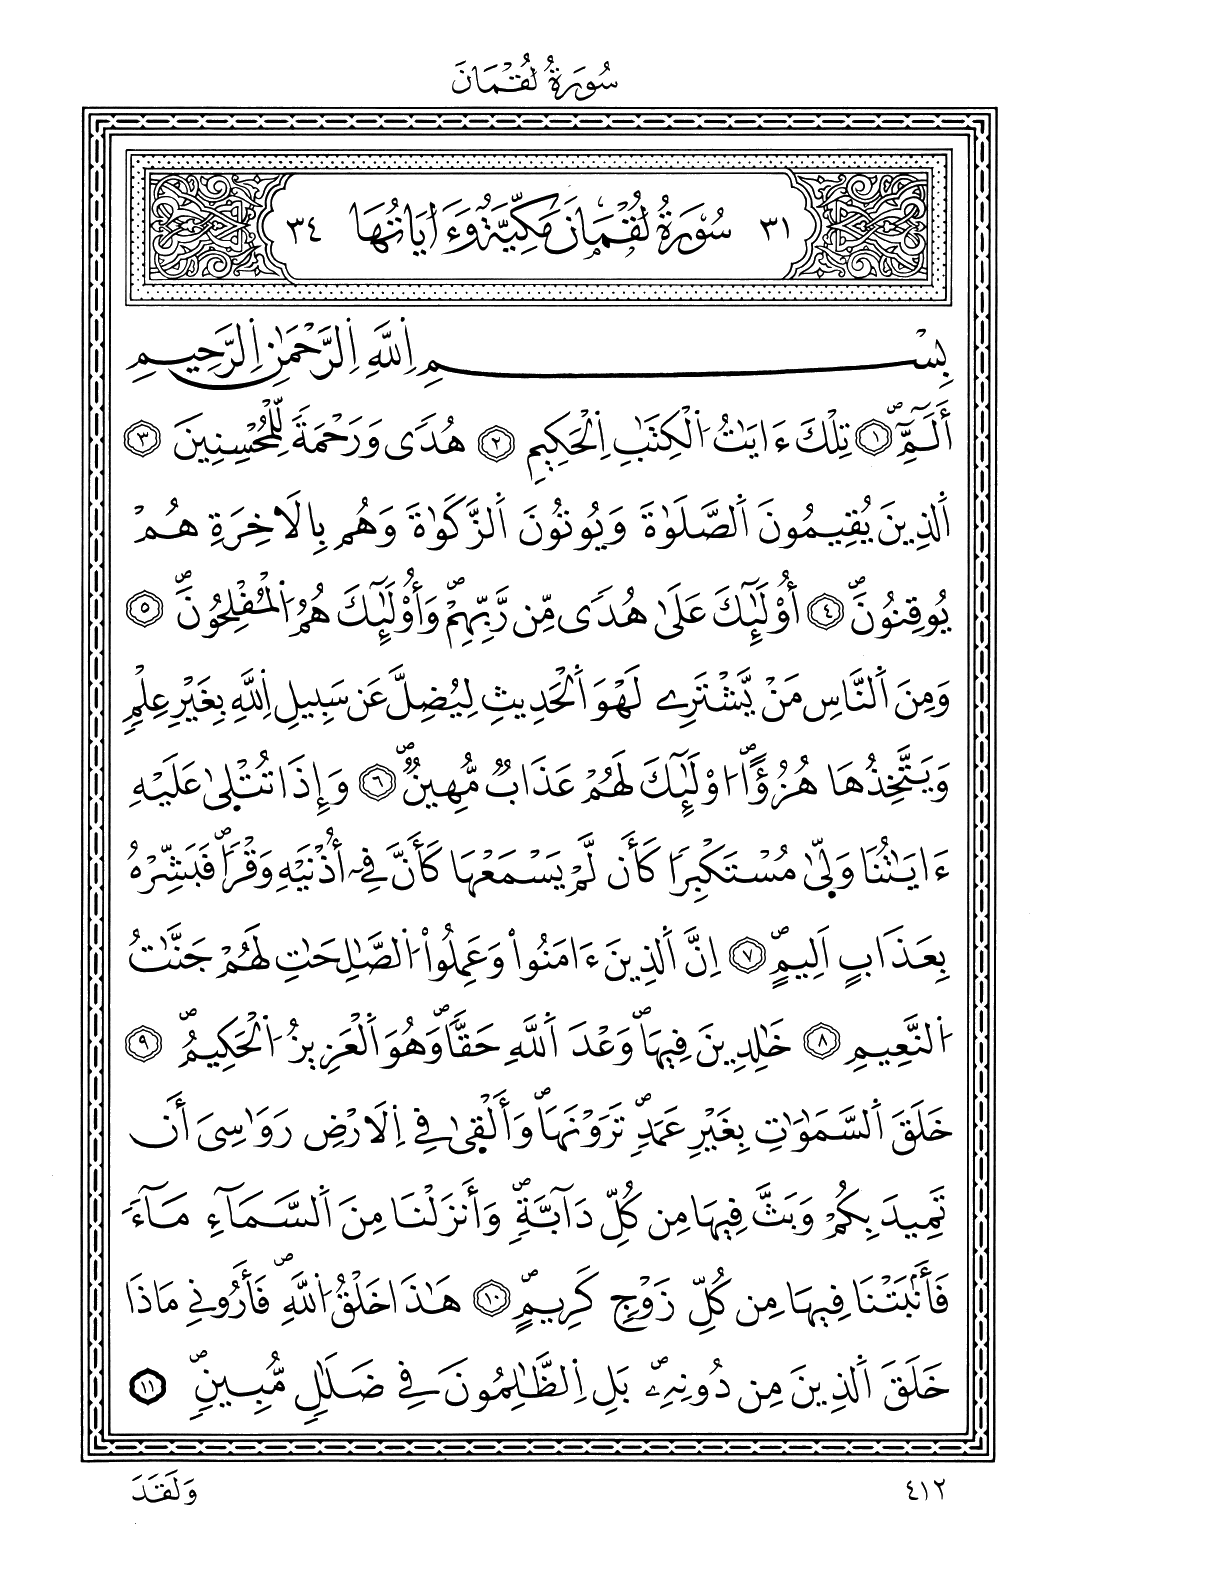 سُورَةُ لُقْمَانَ
٣١ سُورَةُ لُقْمَانَ مَكِّيَّةٌ وَءَايَاتُهَا ٣٤
بِسْمِ اِ۬للَّهِ اِ۬لرَّحْمَٰنِ اِ۬لرَّحِيمِ
أَلَٓمِّٓۖ ١ تِلْكَ ءَايَٰتُ اُ۬لْكِتَٰبِ اِ۬لْحَكِيمِ ٢ هُدىٗ وَرَحْمَةٗ لِّلْمُحْسِنِينَ ٣
اَ۬لذِينَ يُقِيمُونَ اَ۬لصَّلَوٰةَ وَيُوتُونَ اَ۬لزَّكَوٰةَ وَهُم بِالَاخِرَةِ هُمْ
يُوقِنُونَۖ ٤ أُوْلَٰٓئِكَ عَلَىٰ هُدىٗ مِّن رَّبِّهِمْۖ وَأُوْلَٰٓئِكَ هُمُ اُ۬لْمُفْلِحُونَۖ ٥
وَمِنَ اَ۬لنَّاسِ مَنْ يَّشْتَرِے لَهْوَ اَ۬لْحَدِيثِ لِيُضِلَّ عَن سَبِيلِ اِ۬للَّهِ بِغَيْرِ عِلْمٖ
وَيَتَّخِذُهَا هُزُؤاًۖ ا۟وْلَٰٓئِكَ لَهُمْ عَذَابٞ مُّهِينٞۖ ٦ وَإِذَا تُتْلَىٰ عَلَيْهِ
ءَايَٰتُنَا وَلَّىٰ مُسْتَكْبِراٗ كَأَن لَّمْ يَسْمَعْهَا كَأَنَّ فِےٓ أُذْنَيْهِ وَقْراٗۖ فَبَشِّرْهُ
بِعَذَابٍ اَلِيمٍۖ ٧ اِنَّ اَ۬لذِينَ ءَامَنُواْ وَعَمِلُواْ اُ۬لصَّٰلِحَٰتِ لَهُمْ جَنَّٰتُ
اُ۬لنَّعِيمِ ٨ خَٰلِدِينَ فِيهَاۖ وَعْدَ اَ۬للَّهِ حَقّاٗۖ وَهُوَ اَ۬لْعَزِيزُ اُ۬لْحَكِيمُۖ ٩
خَلَقَ اَ۬لسَّمَٰوَٰتِ بِغَيْرِ عَمَدٖ تَرَوْنَهَاۖ وَأَلْقَىٰ فِے اِ۬لَارْضِ رَوَٰسِيَ أَن
تَمِيدَ بِكُمْ وَبَثَّ فِيهَا مِن كُلِّ دَآبَّةٖۖ وَأَنزَلْنَا مِنَ اَ۬لسَّمَآءِ مَآءٗ
فَأَنۢبَتْنَا فِيهَا مِن كُلِّ زَوْجٖ كَرِيمٍۖ ١٠ هَٰذَا خَلْقُ اُ۬للَّهِۖ فَأَرُونِے مَاذَا
خَلَقَ اَ۬لذِينَ مِن دُونِهِۦۖ بَلِ اِ۬لظَّٰلِمُونَ فِے ضَلَٰلٖ مُّبِينٖۖ ١١
٤١٢
وَلَقَدَ